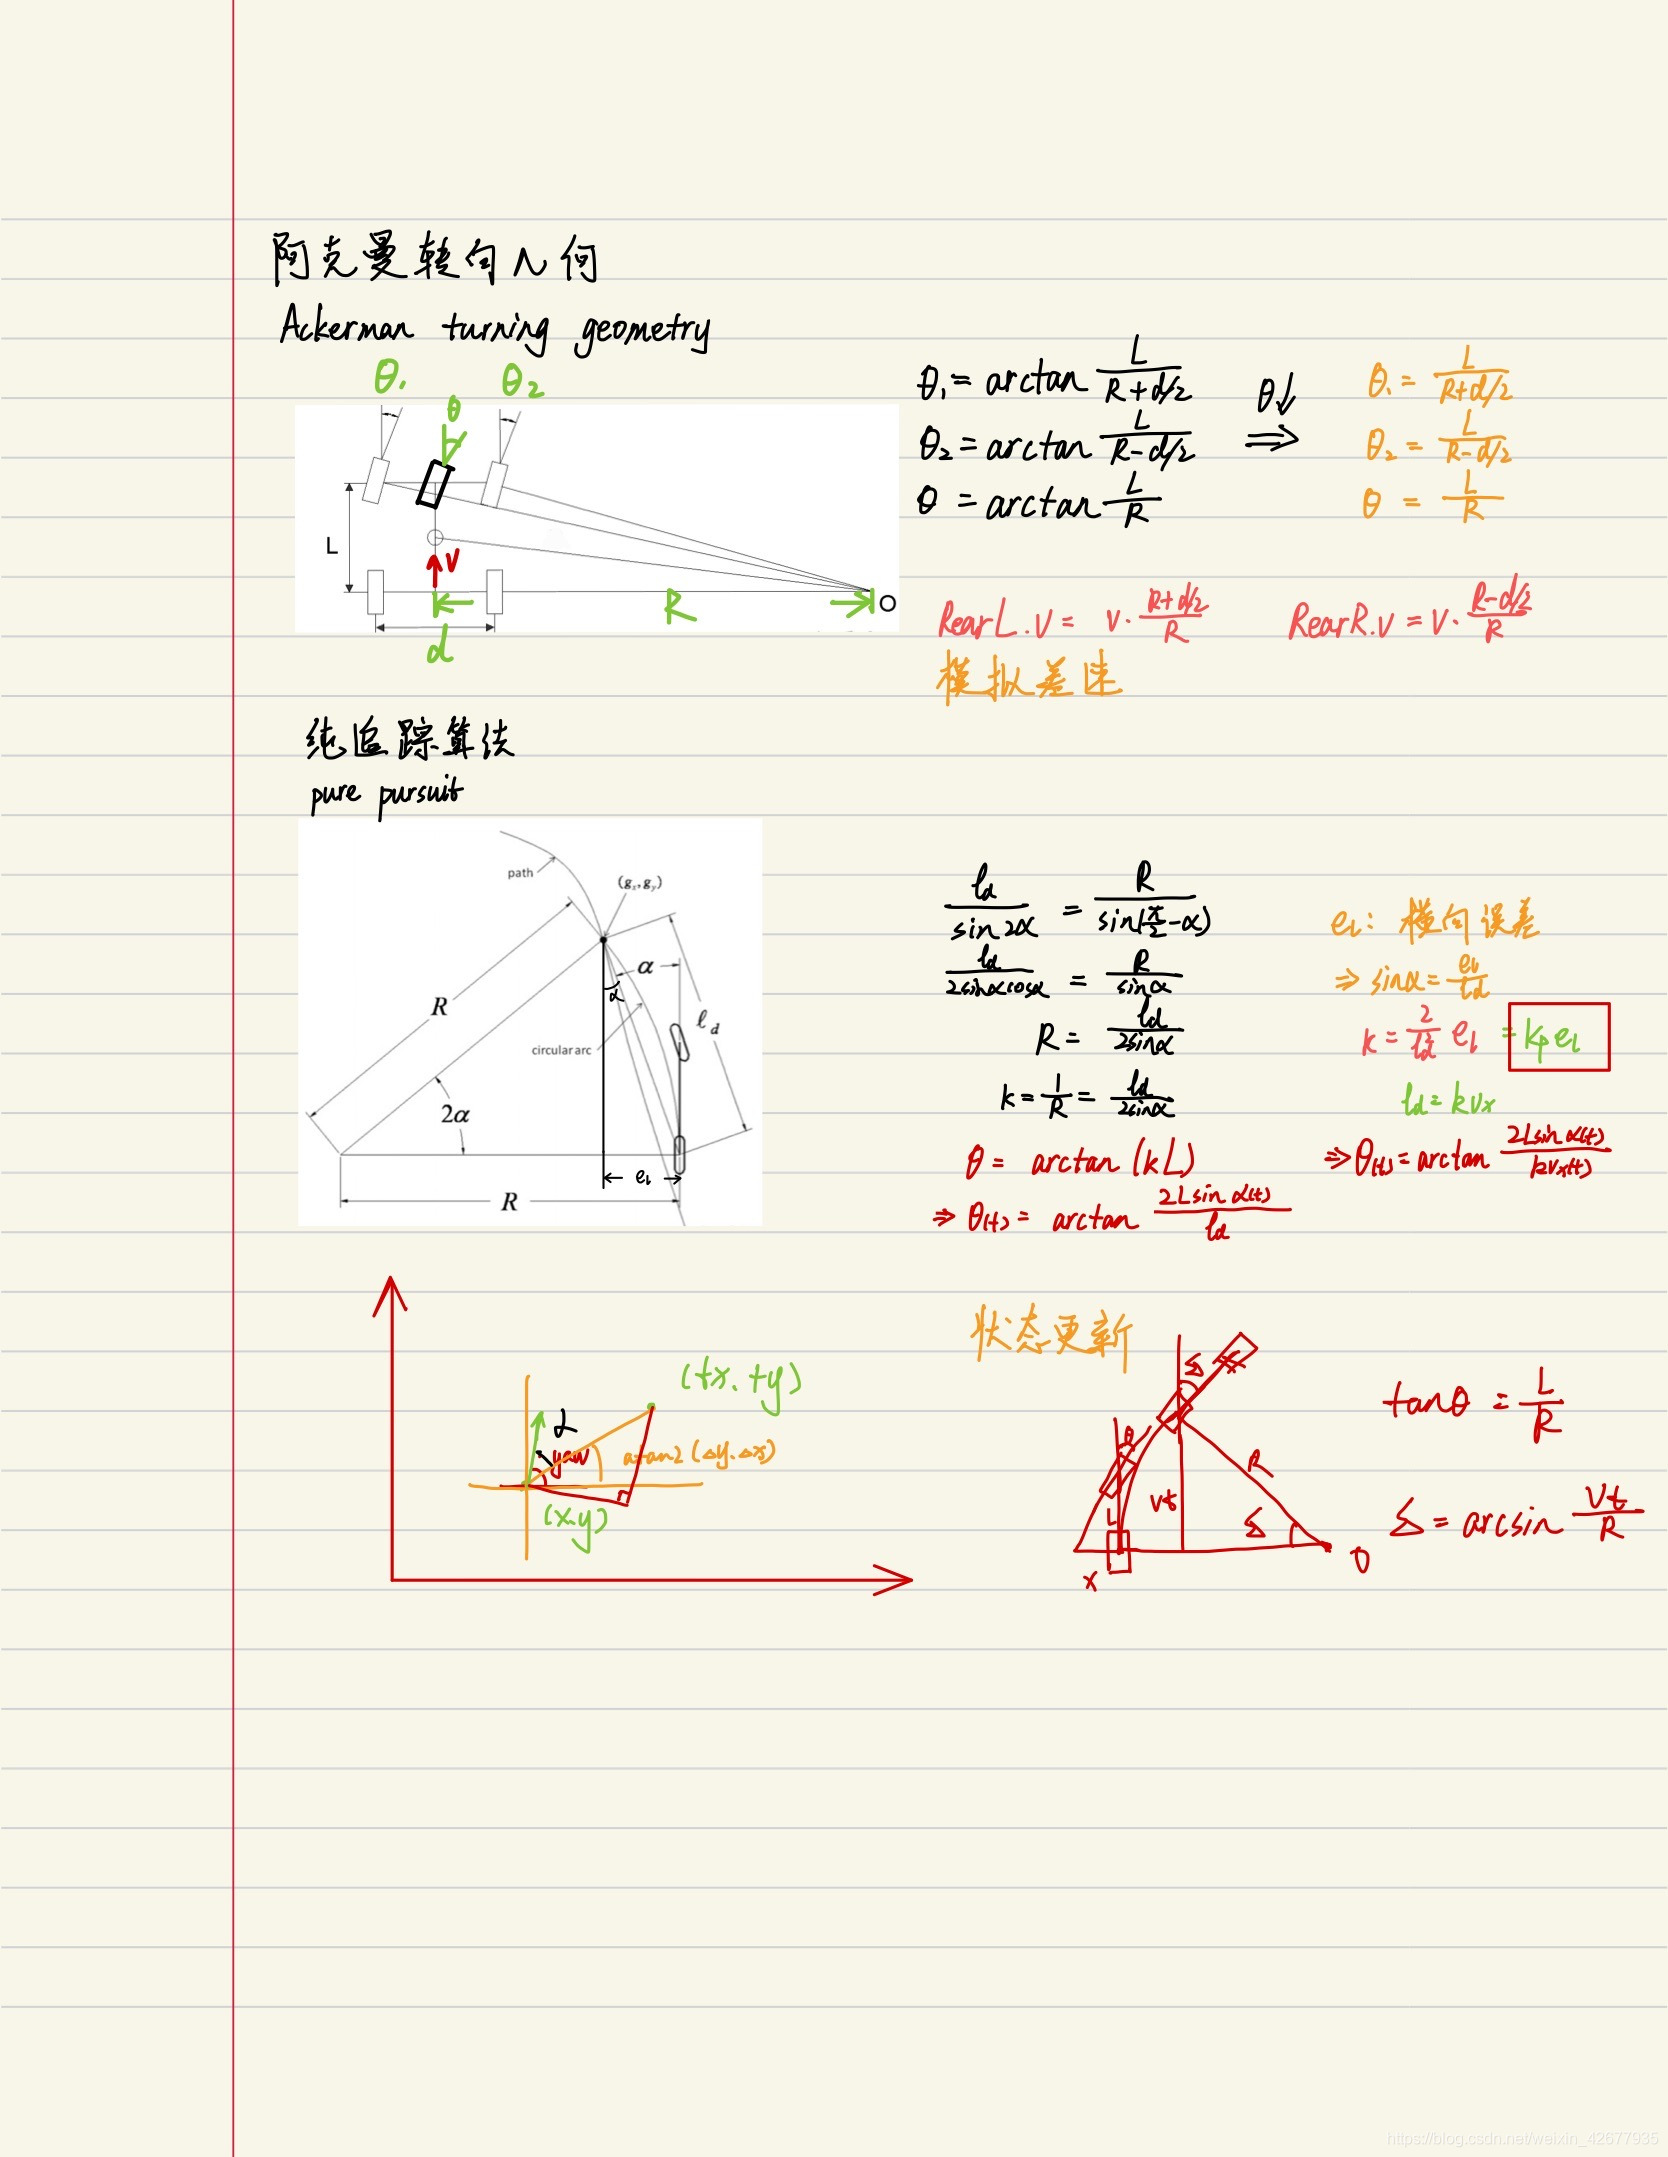 阿克曼转向几何
Ackerman turning geometry
θ₁ θ₂
θ
L
V
R
O
d
θ₁ = arctan L/(R+d/2)
θ₂ = arctan L/(R-d/2)
θ = arctan L/R
θ↓ ⇒
θ₁ = L/(R+d/2)
θ₂ = L/(R-d/2)
θ = L/R
RearL.v = v·(R+d/2)/R
RearR.v = v·(R-d/2)/R
模拟差速
纯追踪算法
pure pursuit
path
(gₓ,gᵧ)
α
α
R
ℓd
circular arc
2α
eₗ
R
ld/sin2α = R/sin(π/2-α)
ld/2sinαcosα = R/sinα
R = ld/2sinα
k = 1/R = ld/2sinα
θ = arctan(kL)
⇒ θ(t) = arctan 2Lsinα(t)/ld
eₗ: 横向误差
⇒ sinα = eₗ/ld
k = 2/ld² eₗ = kp eₗ
ld = kvx
⇒ θ(t) = arctan 2Lsinα(t)/kvx(t)
(tx, ty)
α
yaw
atan2(Δy.Δx)
(x.y)
状态更新
θ
L
vt
R
X
O
tanθ = L/R
= arcsin vt/R
https://blog.csdn.net/weixin_42677935